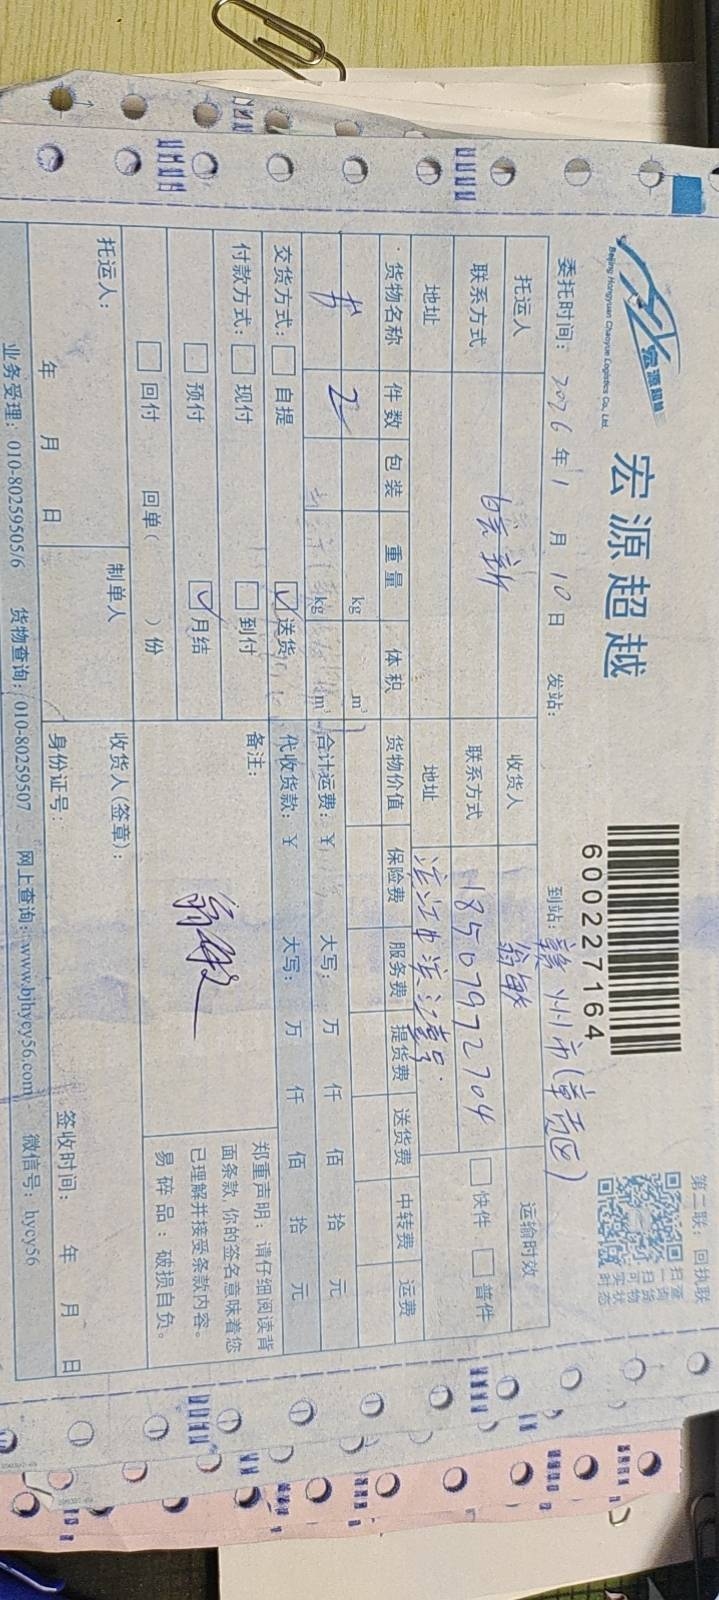 宏源超越
Beijing Hongyuan Chaoyue Logistics Co., Ltd.
宏源超越
600227164
第二联：回执联
扫一扫
查询货物
可实时状态
委托时间：2026年1月10日 发站： 到站：赣州市(章贡区)
托运人 收货人 翁敏 运输时效
联系方式 联系方式 18507972704 快件 普件
地址 地址
货物名称 件数 包装 重量 体积 货物价值 保险费 服务费 提货费 送货费 中转费 运费
书 2 kg m³
kg m³ 合计运费：¥ 大写： 万 仟 佰 拾 元
交货方式： 自提 送货 代收货款：¥ 大写： 万 仟 佰 拾 元
付款方式： 现付 到付 备注：
预付 月结
回付 回单( )份
郑重声明：请仔细阅读背
面条款,你的签名意味着您
已理解并接受条款内容。
易碎品：破损自负。
托运人： 制单人 收货人(签章)：
年 月 日 身份证号： 签收时间： 年 月 日
业务受理：010-80259505/6 货物查询：010-80259507 网上查询：www.bjhycy56.com 微信号：hycy56